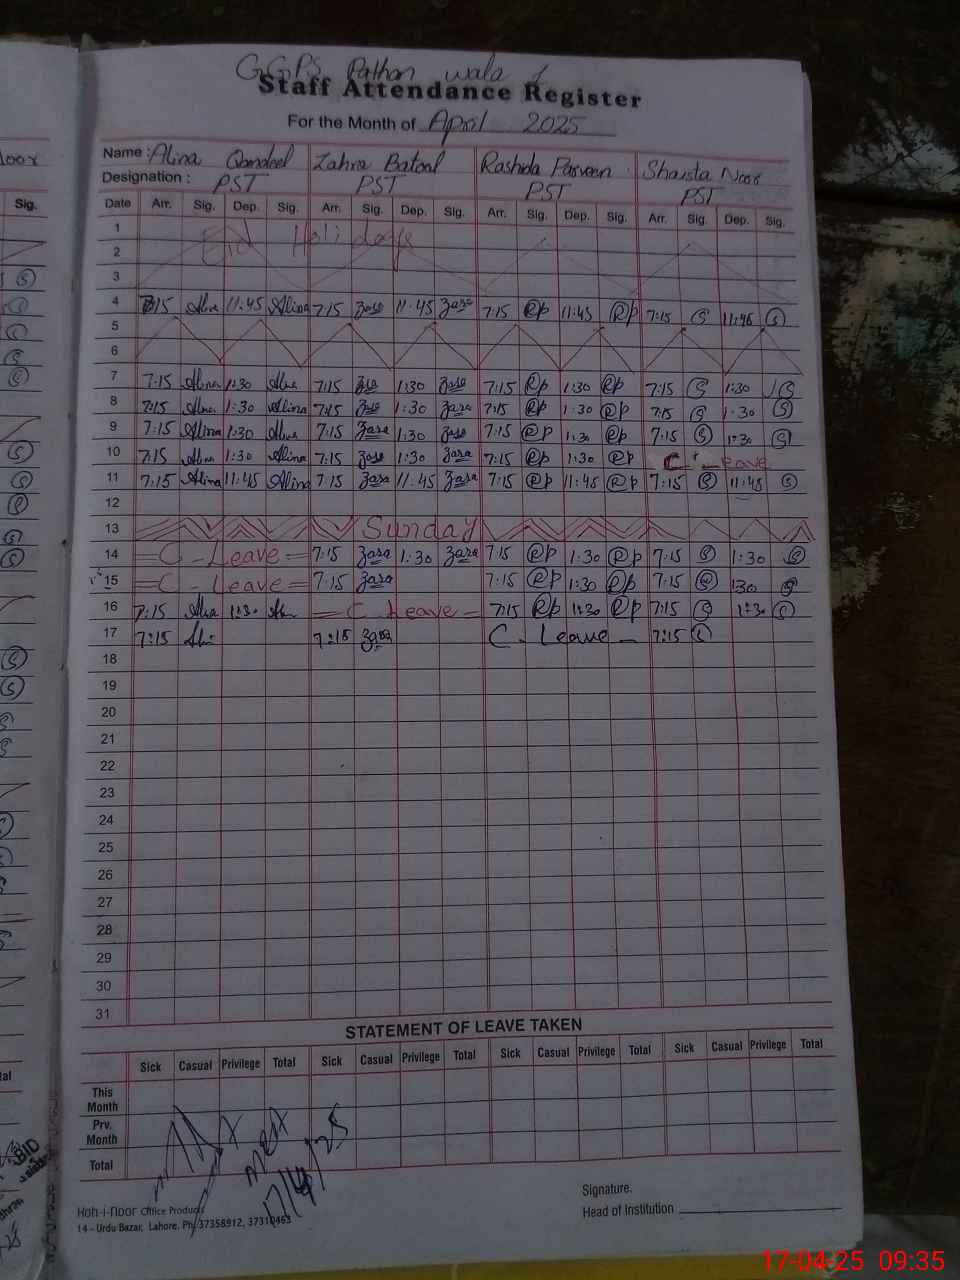 GGPS Pathan wala
Staff Attendance Register
For the Month of April 2025
Name : Alina Qandeel Zahra Batool Rashida Parveen Shaista Noor
Designation : PST PST PST PST
Date Arr. Sig. Dep. Sig. Arr. Sig. Dep. Sig. Arr. Sig. Dep. Sig. Arr. Sig. Dep. Sig.
1
2 Eid Holidays
3
4 7:15 Alina 11:45 Alina 7:15 Zara 11:45 Zara 7:15 Rp 11:45 Rp 7:15 S 11:45 S
5
6
7 7:15 Alina 1:30 Alina 7:15 Zara 1:30 Zara 7:15 Rp 1:30 Rp 7:15 S 1:30 S
8 7:15 Alina 1:30 Alina 7:15 Zara 1:30 Zara 7:15 Rp 1:30 Rp 7:15 S 1:30 S
9 7:15 Alina 1:30 Alina 7:15 Zara 1:30 Zara 7:15 Rp 1:30 Rp 7:15 S 1:30 S
10 7:15 Alina 1:30 Alina 7:15 Zara 1:30 Zara 7:15 Rp 1:30 Rp C - Leave
11 7:15 Alina 11:45 Alina 7:15 Zara 11:45 Zara 7:15 Rp 11:45 Rp 7:15 S 11:45 S
12
13 Sunday
14 = C - Leave = 7:15 Zara 1:30 Zara 7:15 Rp 1:30 Rp 7:15 S 1:30 S
15 = C - Leave = 7:15 Zara 7:15 Rp 1:30 Rp 7:15 S 130 S
16 7:15 Alina 1:30 Alina = C. Leave = 7:15 Rp 1:30 Rp 7:15 S 1:30 S
17 7:15 Ali 7:15 Zara C - Leave - 7:15 S
18
19
20
21
22
23
24
25
26
27
28
29
30
31
STATEMENT OF LEAVE TAKEN
Sick Casual Privilege Total Sick Casual Privilege Total Sick Casual Privilege Total Sick Casual Privilege Total
This Month
Prv. Month
Total
17/4/25
Signature.
Head of Institution
Hoh-i-noor Office Products
14 - Urdu Bazar, Lahore, Ph: 37358912, 37310463
17-04-25 09:35